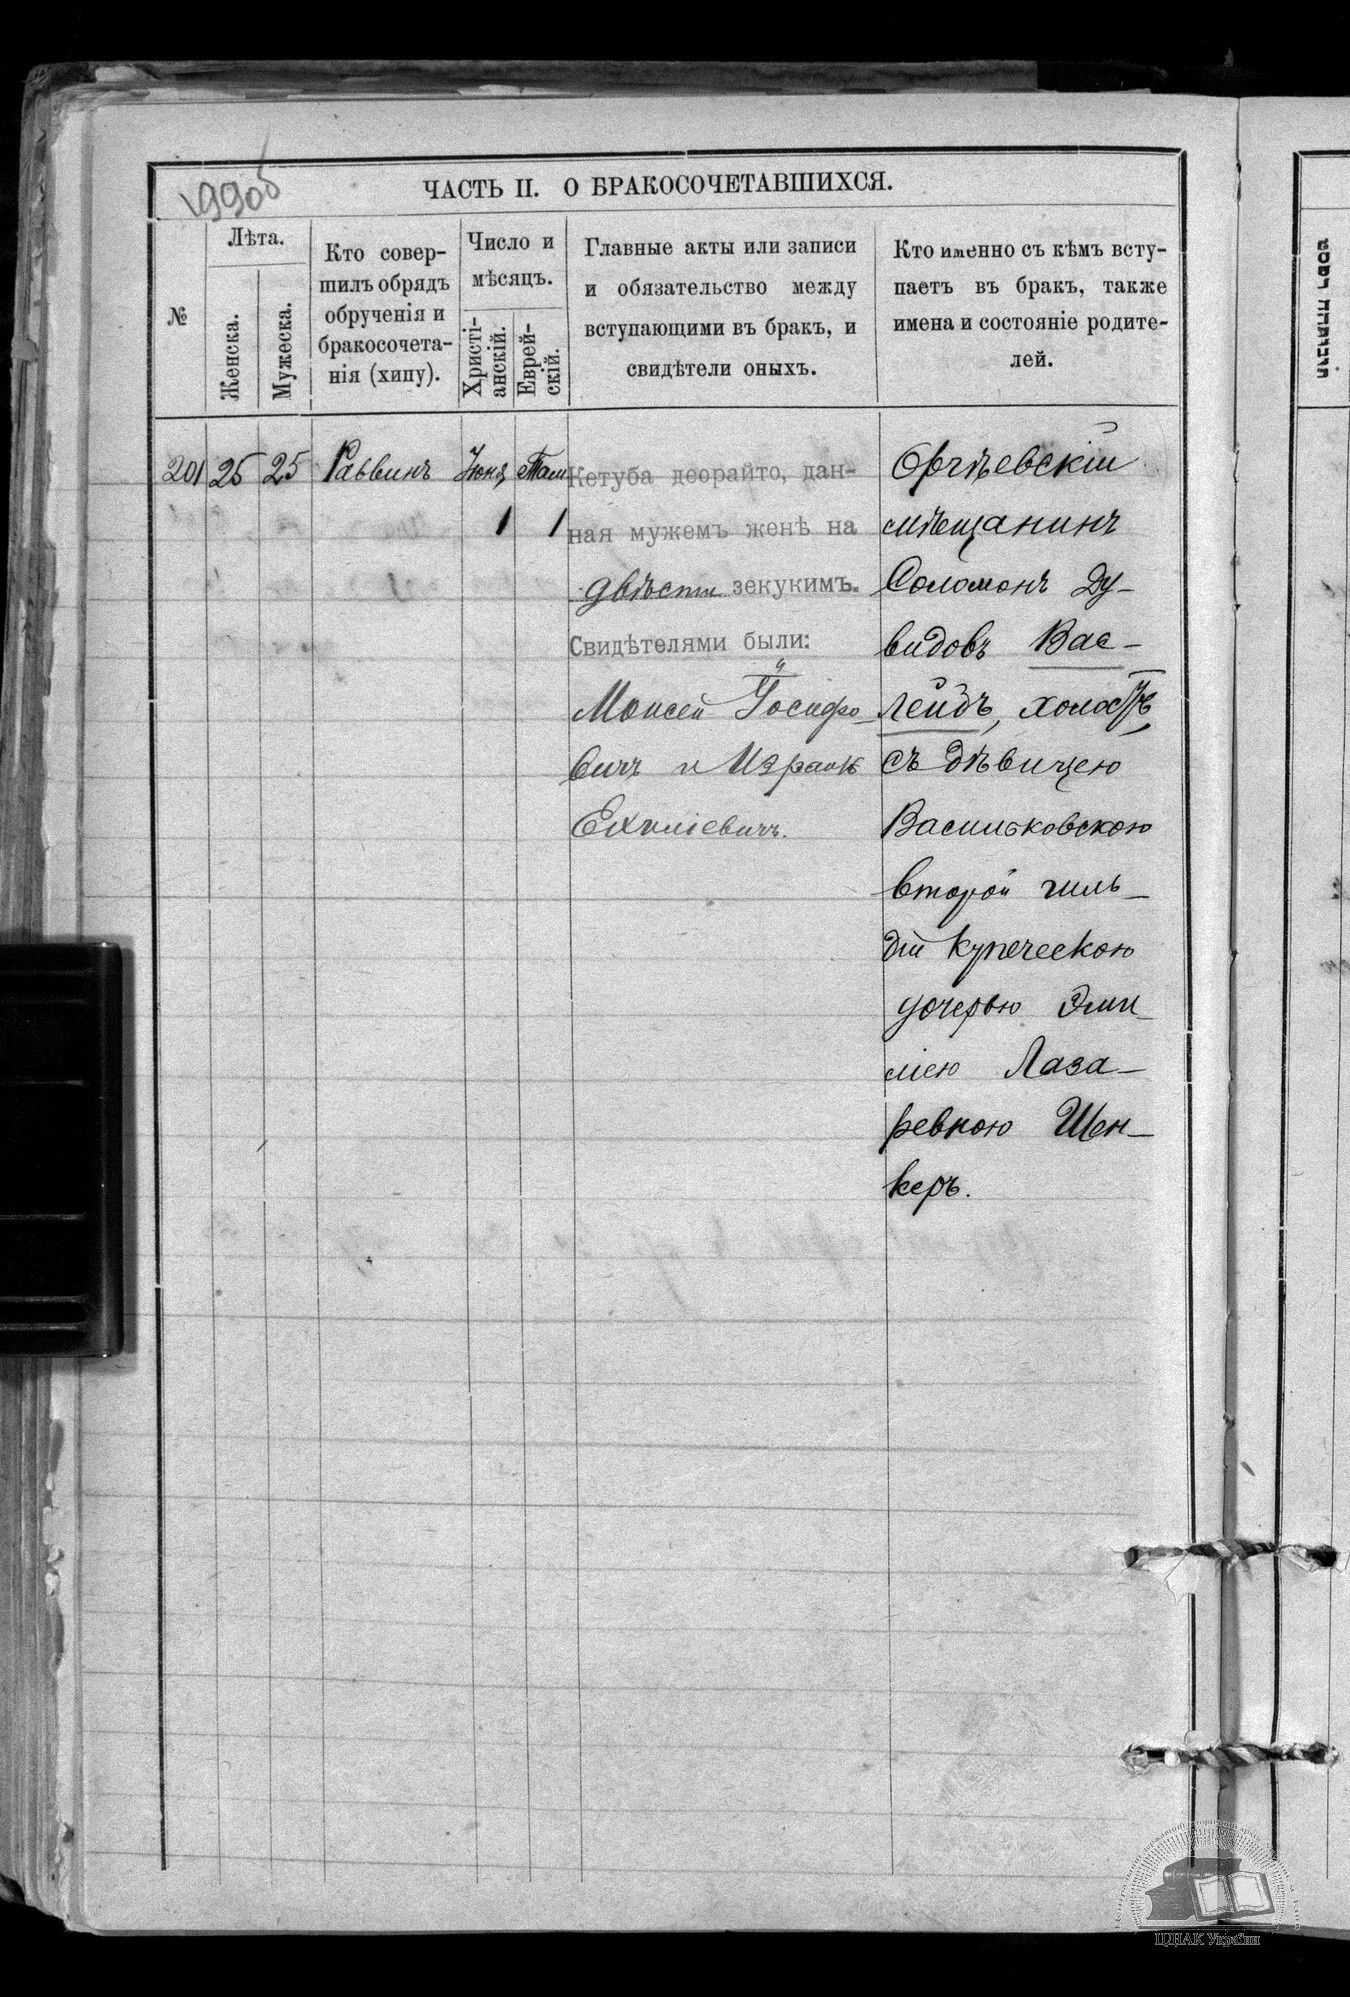 199об
ЧАСТЬ II. О БРАКОСОЧЕТАВШИХСЯ.
№
Лѣта.
Женска.
Мужеска.
Кто совер-
шилъ обрядъ
обрученія и
бракосочета-
нія (хипу).
Число и
мѣсяцъ.
Христі-
анскій.
Еврей-
скій.
Главные акты или записи
и обязательство между
вступающими въ бракъ, и
свидѣтели оныхъ.
Кто именно съ кѣмъ всту-
паетъ въ бракъ, также
имена и состояніе родите-
лей.
201
25
25
Раввинъ
Іюня
1
Там
1
Кетуба деорайто, дан-
ная мужемъ женѣ на
двѣсти зекукимъ.
Свидѣтелями были:
Моисей Іосифо-
вичъ и Израиль
Ехиліевичъ.
Оргѣевскій
мѣщанинъ
Соломонъ Ду-
видовъ Вас-
лейдъ, холостъ,
съ дѣвицею
Васильковскою
второй гиль-
діи купеческою
дочерью Эми-
ліею Лаза-
ревною Шен-
керъ.
ЦДІАК України